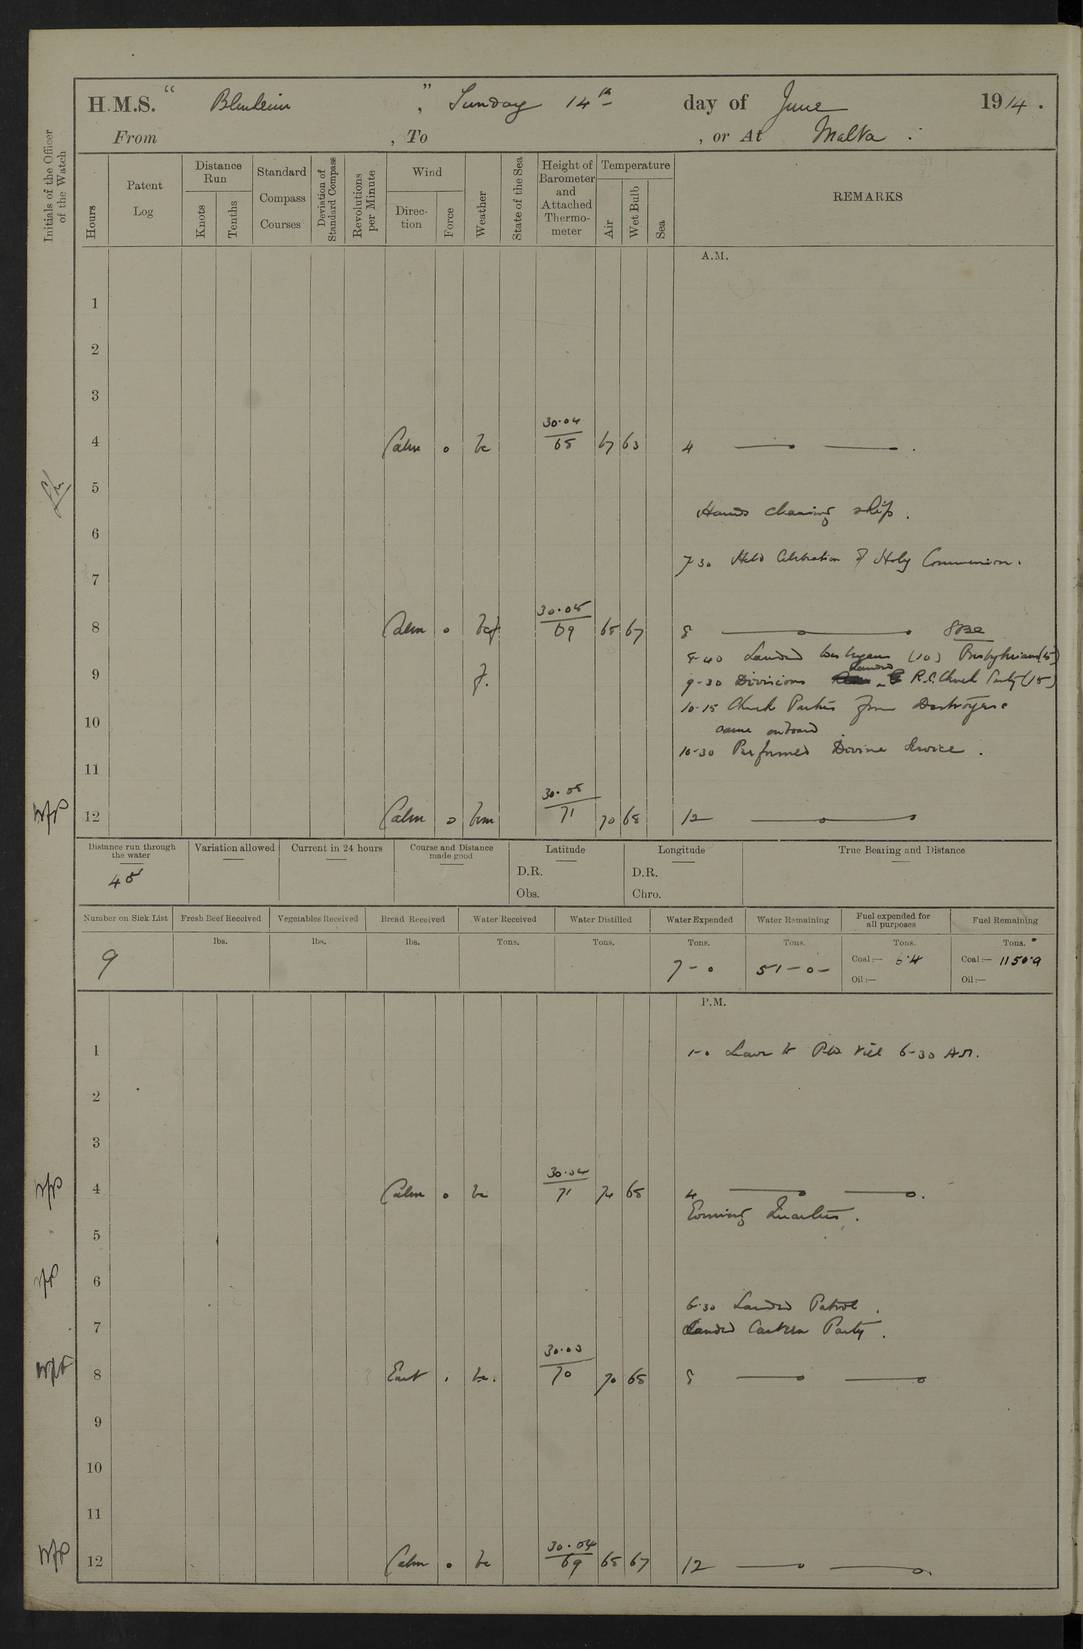 H.M.S. "Blenheim", Sunday 14th day of June 1914.
From , To , or At Malta
Initials of the Officer of the Watch
Hours
Patent Log
Distance Run
Knots
Tenths
Standard Compass Courses
Deviation of Standard Compass
Revolutions per Minute
Wind
Direction
Force
Weather
State of the Sea
Height of Barometer and Attached Thermometer
Temperature
Air
Wet Bulb
Sea
REMARKS
A.M.
1
2
3
4 Calm 0 bc 30.04 65 67 63 4
5
Hands cleaning ship.
6
7.30 Held Celebration of Holy Communion.
7
8 Calm 0 bcf 30.05 69 65 67 8
8.40 Landed Wesleyans (10) Presbyterians
9 f. 9-30 Divisions Landed R.C. Church Party (15)
10-15 Church Parties from Destroyers
10 came onboard
10-30 Performed Divine Service.
11
12 Calm 0 bcm 30.05 71 70 68 12
Distance run through the water
Variation allowed
Current in 24 hours
Course and Distance made good
Latitude
Longitude
True Bearing and Distance
D.R. D.R.
Obs. Chro.
Number on Sick List
Fresh Beef Received
Vegetables Received
Bread Received
Water Received
Water Distilled
Water Expended
Water Remaining
Fuel expended for all purposes
Fuel Remaining
lbs. lbs. lbs. Tons. Tons. Tons. Tons. Tons. Tons.
9 7-0 51-0- Coal:— 6.4 Coal:— 1150.9
Oil:— Oil:—
P.M.
1 1-0 Leave to till 6-30 AM.
2
3
4 Calm 0 bc 30.04 71 68 4
Evening Quarters.
5
6
6.30 Landed Patrol.
7 Landed Canteen Party.
8 East 1 bc. 30.03 70 70 68 8
9
10
11
12 Calm 0 bc 30.04 69 65 67 12